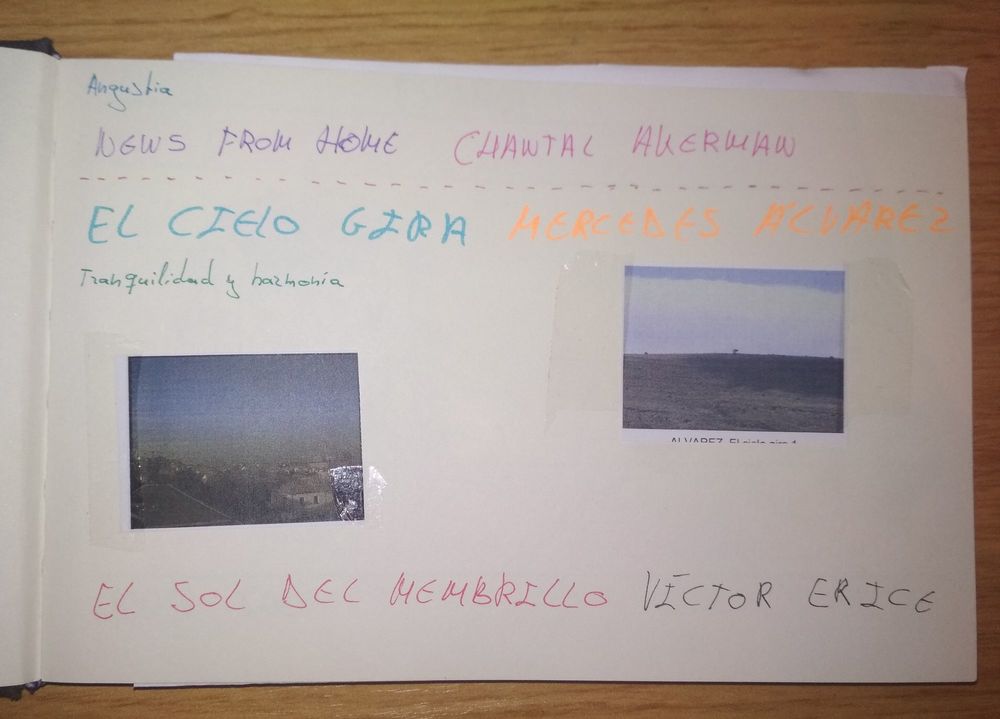 Angustia
NEWS FROM HOME CHANTAL AKERMAN
EL CIELO GIRA MERCEDES ALVAREZ
Tranquilidad y harmonía
ALVAREZ El cielo gira 1
EL SOL DEL MEMBRILLO VÍCTOR ERICE